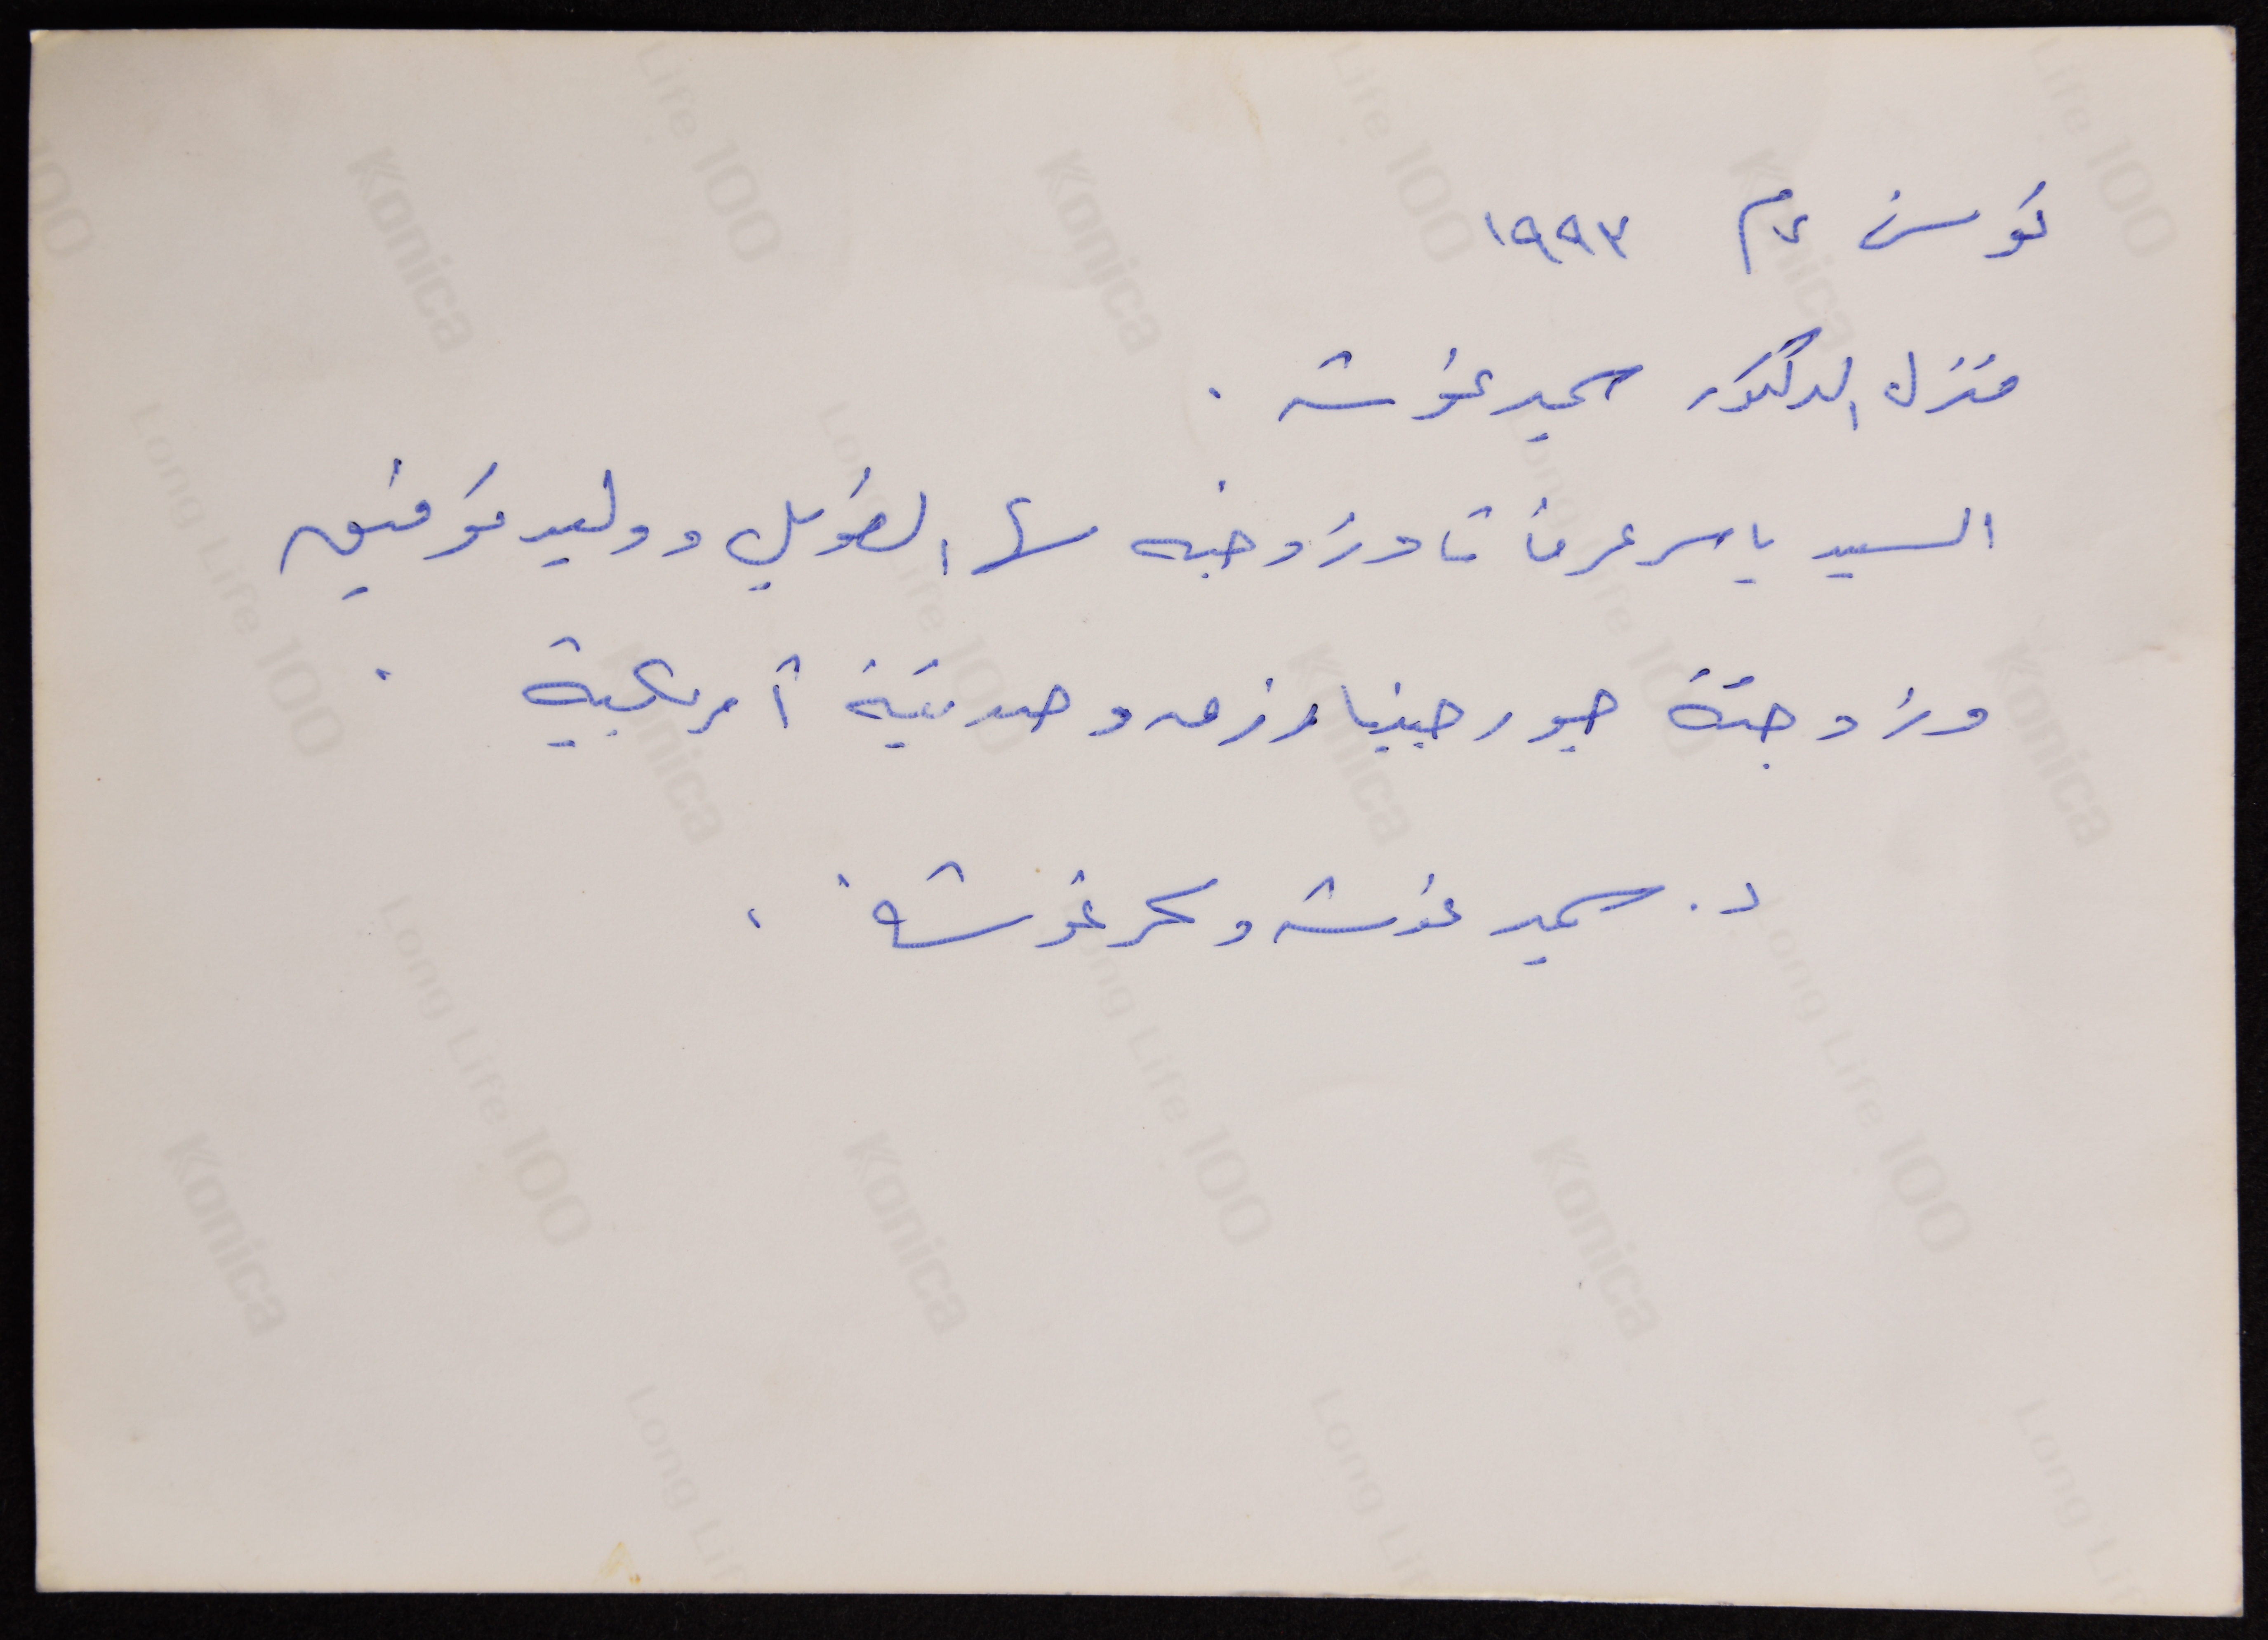 تونس ٧م ١٩٩٣
منزل الدكتور سمير غوشه .
السيد ياسر عرفات وزوجته سها الطويل ووليد توفيق
وزوجتة جيورجينا رزق وصديقة أمريكية .
د. سمير غوشه وسحر غوشة .
Konica
Long Life 100